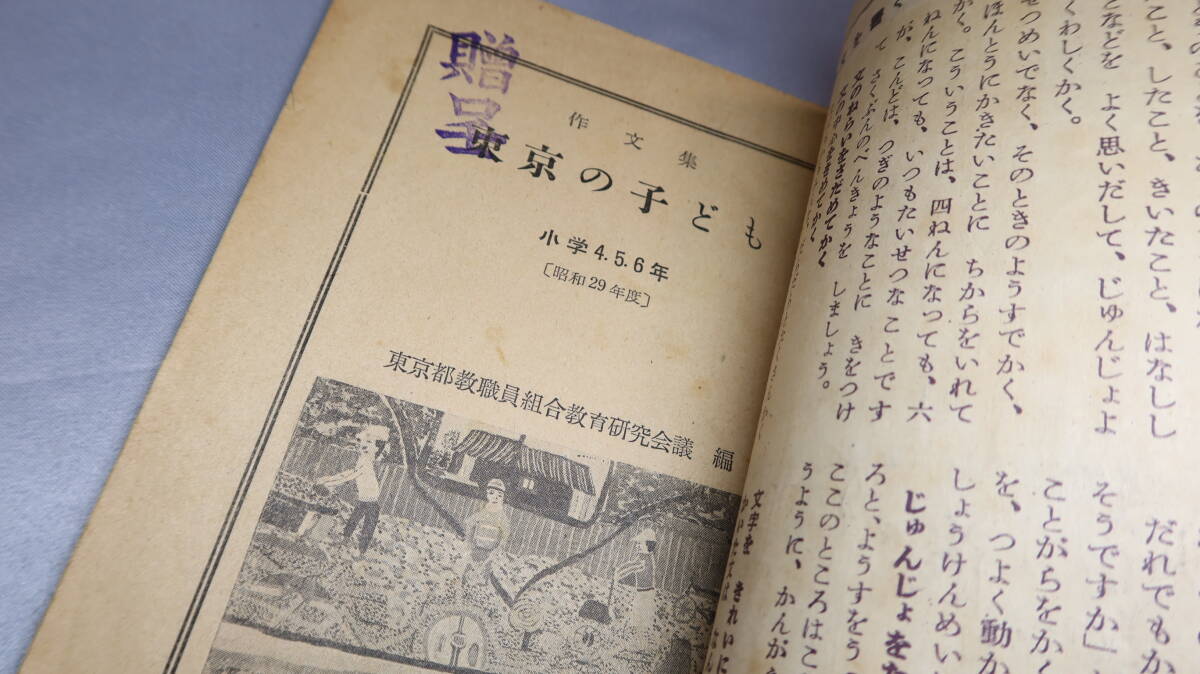 贈呈
作文集
東京の子ども
小学4.5.6年
〔昭和29年度〕
東京都教職員組合教育研究会議 編
こと、したこと、きいたこと、はなしし
となどを よく思いだして、じゅんじょよ
くわしくかく。
せつめいでなく、そのときのようすでかく、
ほんとうにかきたいことに ちからをいれて
かく。こういうことは、四ねんになっても、六
ねんになっても、いつもたいせつなことです
が、こんどは、つぎのようなことに きをつけ
て さくぶんのべんきょうを しましょう。
文のねらいをさだめてかく
だれでもか
そうですか」
ことがらをかく
を、つよく動か
しょうけんめい
じゅんじょをた
ろと、ようすをう
ここのところはこ
うように、かんが
文字を きれいに
かいたては